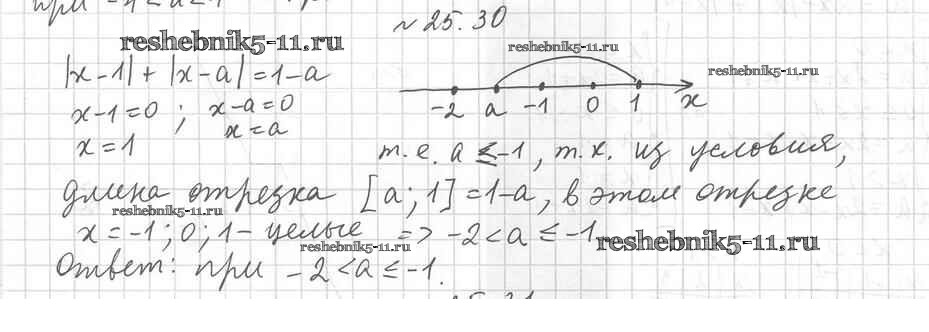 при -1 < a < 1 пр
№ 25.30
reshebnik5-11.ru
|x-1| + |x-a| = 1-a
x-1=0 ; x-a=0
x=1 x=a
reshebnik5-11.ru
reshebnik5-11.ru
-2 a -1 0 1 x
т.е. a ≤ -1, т.к. из условия,
длина отрезка [a; 1] = 1-a, в этом отрезке
reshebnik5-11.ru
x = -1; 0; 1 - целые => -2 < a ≤ -1
reshebnik5-11.ru
reshebnik5-11.ru
Ответ: при -2 < a ≤ -1.